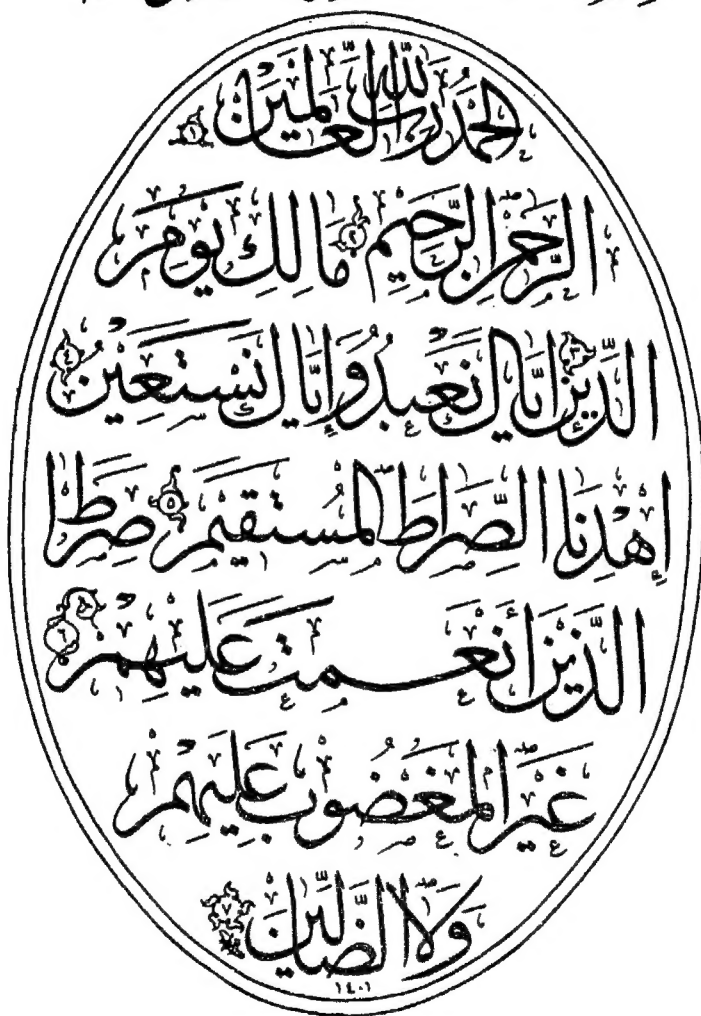 الْحَمْدُ لِلَّهِ رَبِّ الْعَالَمِينَ ١
الرَّحْمٰنِ الرَّحِيمِ ٢ مَالِكِ يَوْمِ
الدِّينِ ٣ إِيَّاكَ نَعْبُدُ وَإِيَّاكَ نَسْتَعِينُ ٤
إِهْدِنَا الصِّرَاطَ الْمُسْتَقِيمَ ٥ صِرَاطَ
الَّذِينَ أَنْعَمْتَ عَلَيْهِمْ ٦
غَيْرِ الْمَغْضُوبِ عَلَيْهِمْ
وَلَا الضَّالِّينَ ٧
١٤٠١